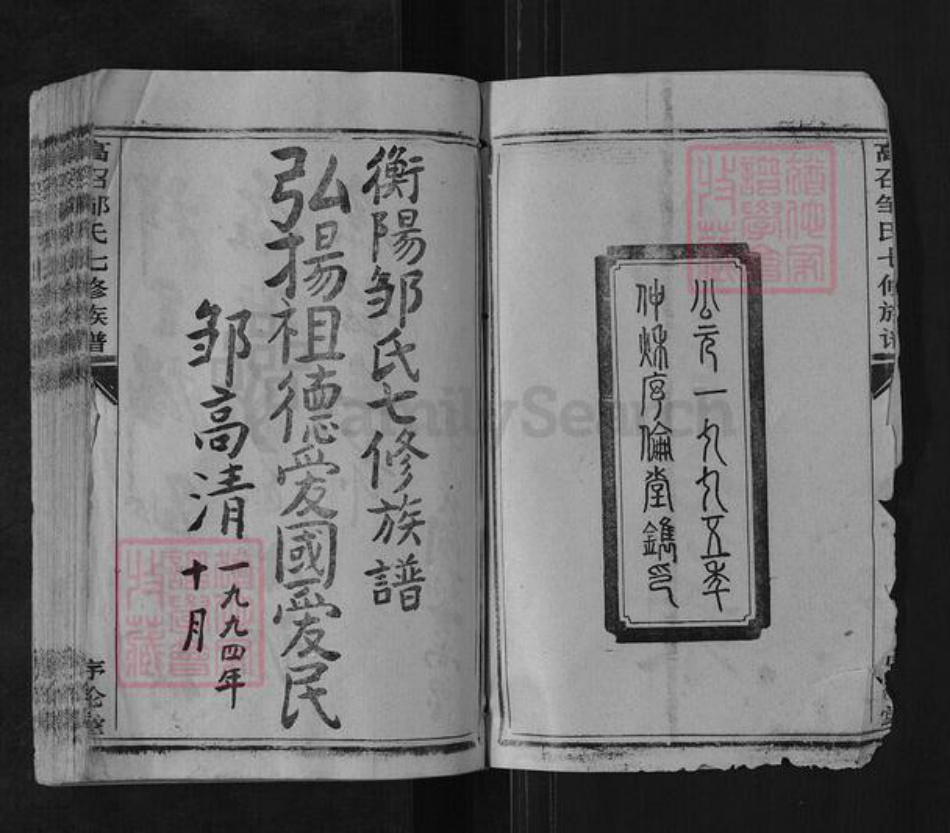 公元一九九五年
仲秋序倫堂鐫印
高召邹氏七修族谱
衡陽邹氏七修族譜
弘揚祖德愛國愛民
邹高清
一九九四年
十月
高召邹氏七修族谱
序伦堂
FamilySearch